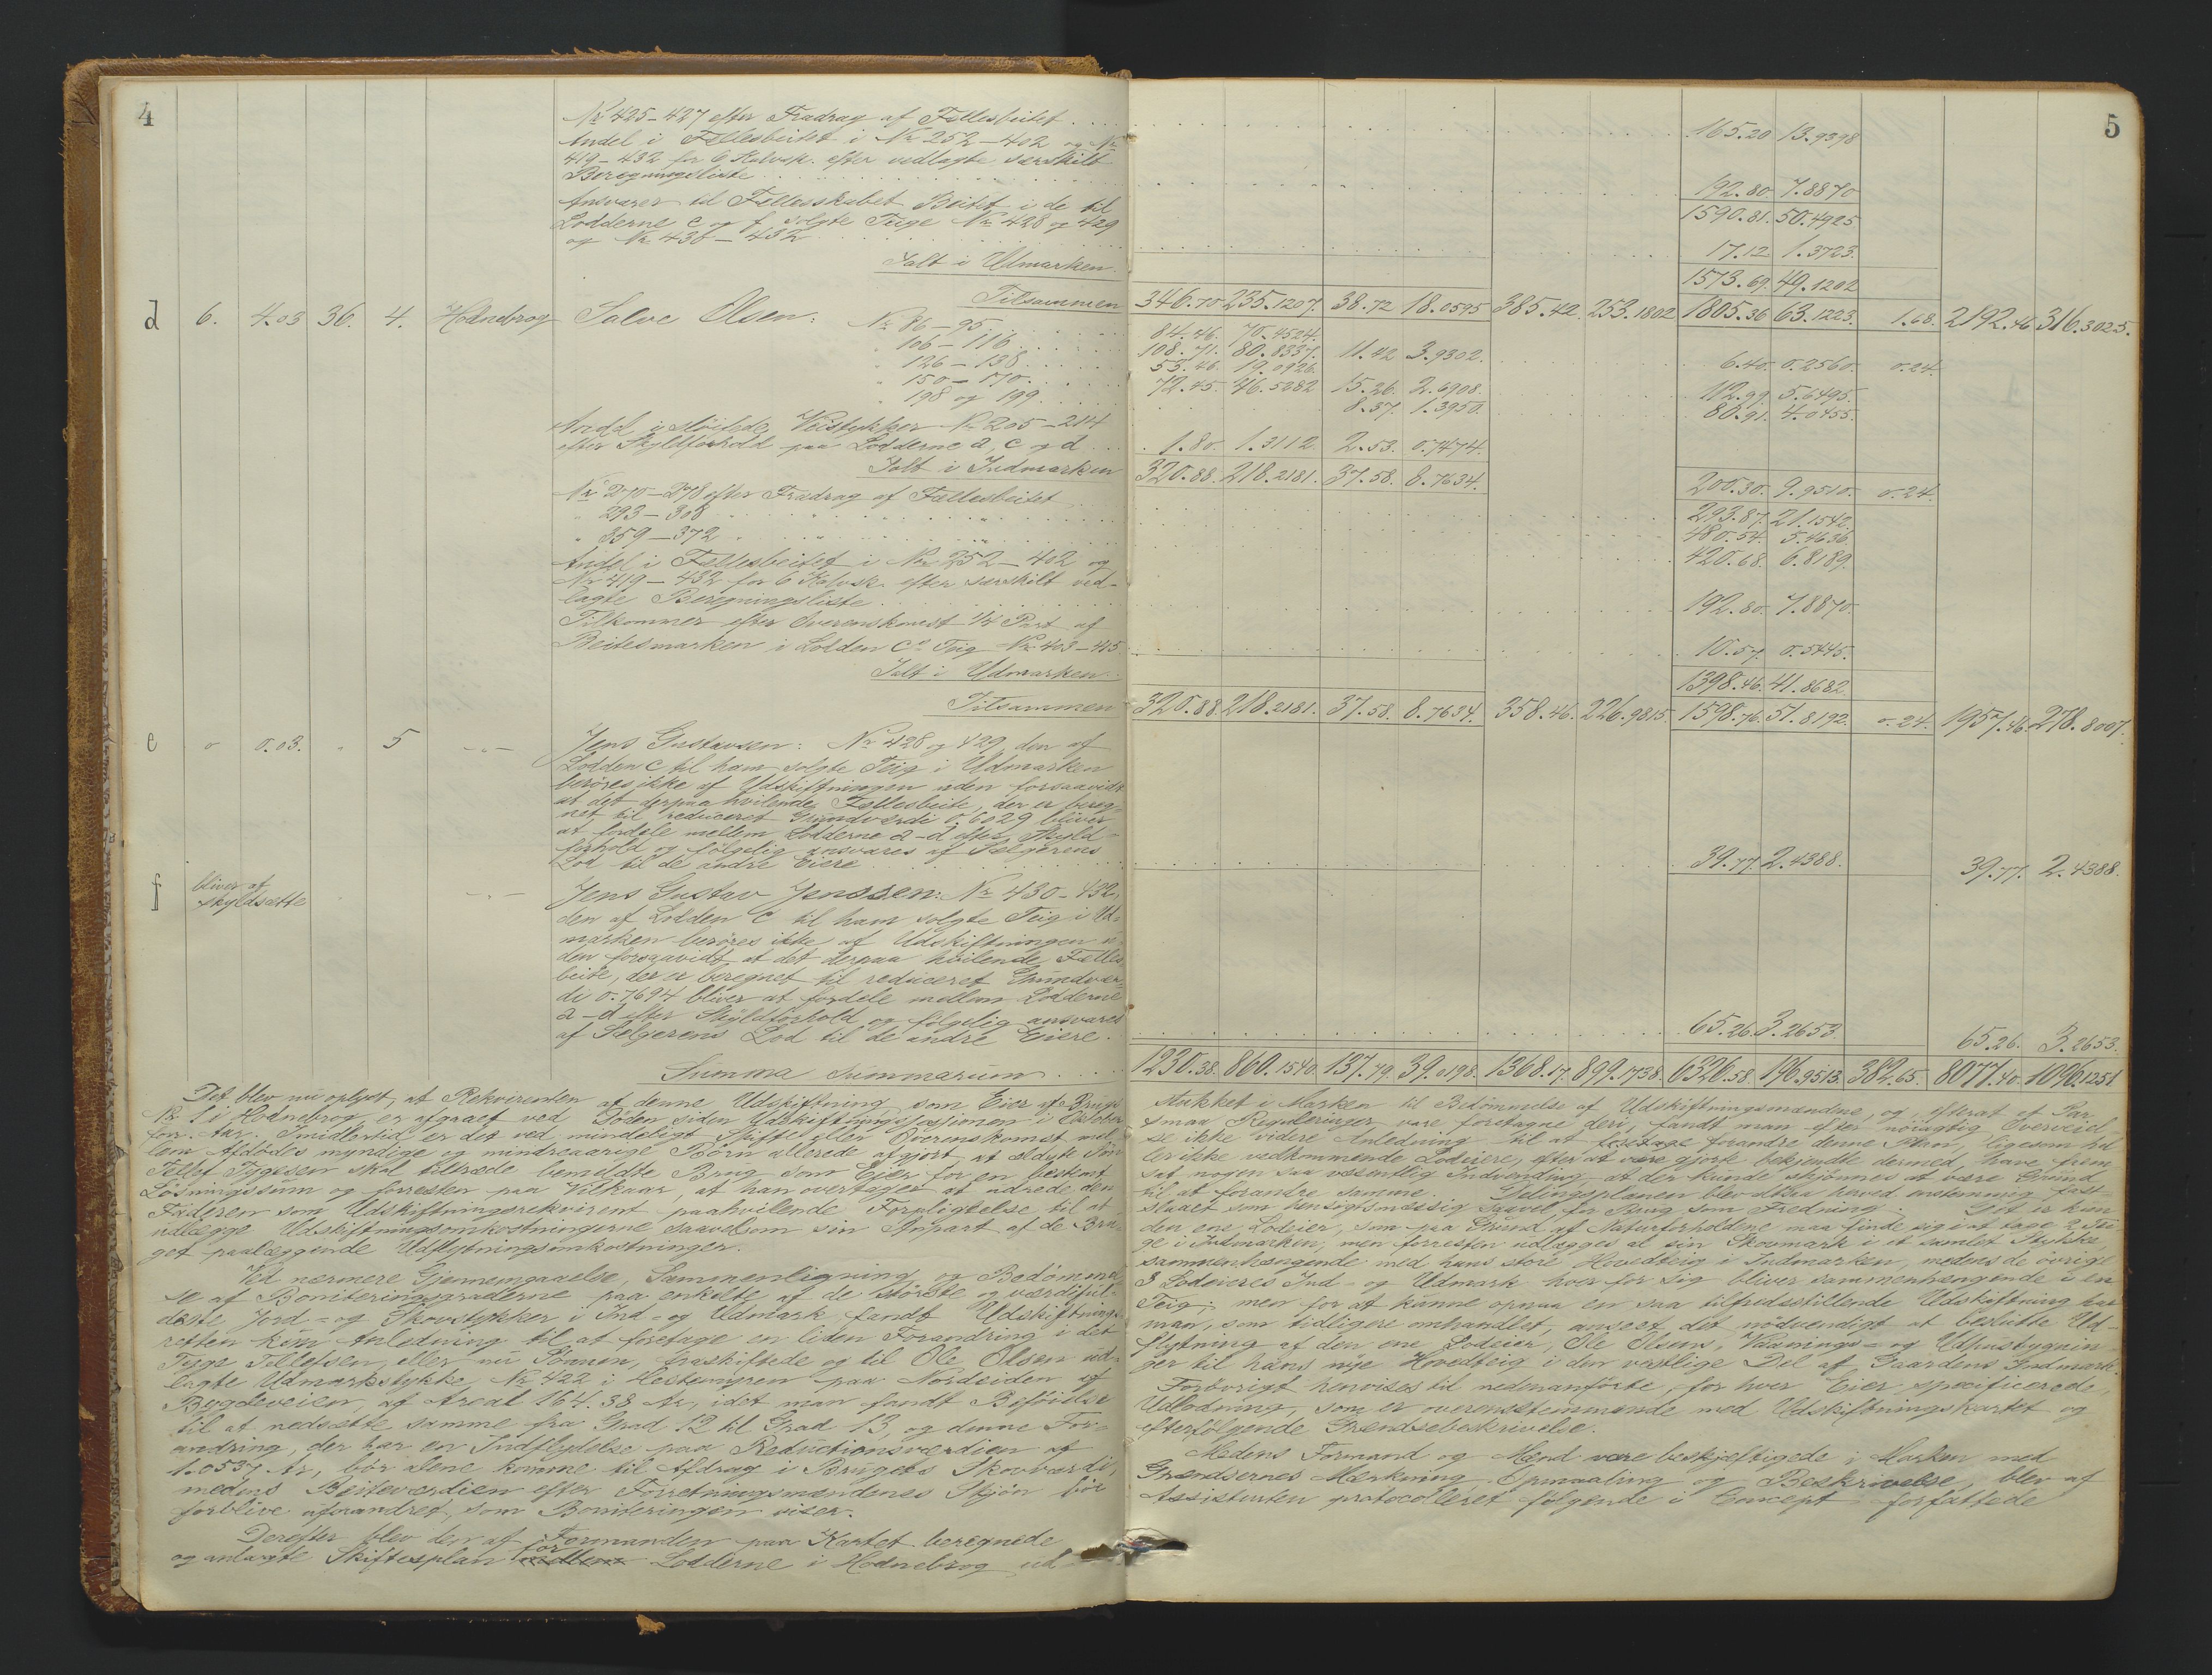 4
Nr 425-427 efter Fradrag af Fællesbeitet . . . . 165.20 13.9398
Andel i Fællesbeitet i Nr 252-402 og Nr
419-432 for 6 Kalvsk. efter vedlagte særskilt
Beregningsliste . . . . 192.80. 7.8870
1590.81. 50.4925
Ansvarer til Fællesskabet Beitet i de til
Lodderne c og f solgte Teige Nr 428 og 429
og Nr 430-432 . . . . 17.12 1.3723.
Ialt i Udmarken 1573.69. 49.1202
Tilsammen 346.70. 235.1207. 38.72 18.0595 385.42. 253.1802 1805.36 63.1223. 1.68. 2192.46 316.3025.
d 6. 4.03 36. 4. Hodnebrog Salve Olsen: Nr 86-95 . . . . 84.46. 70.4524.
" 106-116 . . . . 108.71. 80.8337. 11.42 3.9302. 6.40. 0.2560. 0.24.
" 126-138 . . . . 53.46. 19.0926.
" 150-170 . . . . 72.45 46.5282 15.26. 2.6908. 112.99. 5.6495.
" 198 og 199 . . . . 8.37. 1.3950. 80.91. 4.0455.
Andel i Veistykker Nr 205-214
efter Skyldforhold paa Lodderne a, c og d . . . 1.80. 1.3112 2.53. 0.7474.
Ialt i Indmarken 320.88. 218.2181. 37.58. 8.7634. 200.30. 9.9510. 0.24.
Nr 270-278 efter Fradrag af Fællesbeitet 293.87. 21.1542.
" 293-308 . . . . 480.54. 5.4636.
" 359-372 . . . . 420.68. 6.8189.
Andel i Fællesbeitet i Nr 252-402 og
Nr 419-432 for 6 Kalvsk. efter særskilt ved-
lagte Beregningsliste . . . . 192.80. 7.8870.
Tilkommer efter Overenskomst 1/4 Part af
Beitesmarken i Lodden c's Teig Nr 403-415 10.57. 0.5445.
Ialt i Udmarken 1398.46. 41.8682.
Tilsammen 320.88. 218.2181. 37.58. 8.7634. 358.46. 226.9815 1598.76. 51.8192. 0.24. 1957.46. 278.8007.
e 0 0.03. " 5 -"- Jens Gustavsen: Nr 428 og 429, den af
Lodden c til ham solgte Teig i Udmarken
berøres ikke af Udskiftningen uden forsaavidt
at det derpaa hvilende Fællesbeite, der er bereg-
net til reduceret Grundværdi 0.6029 bliver
at fordele mellem Lodderne a-d efter Skyld-
forhold og følgelig ansvares af Sælgerens
Lod til de andre Eiere . . . . 39.77. 2.4388. 39.77. 2.4388.
f bliver at
skyldsætte " -"- Jens Gustav Jenssen: Nr 430-432,
den af Lodden c til ham solgte Teig i Ud-
marken berøres ikke af Udskiftningen u-
den forsaavidt at det derpaa hvilende Fælles
beite, der er beregnet til reduceret Grundvær-
di 0.7694 bliver at fordele mellem Lodderne
a-d efter Skyldforhold og følgelig ansvares
af Sælgerens Lod til de andre Eiere. 65.26. 3.2653 65.26. 3.2653.
Summa Summarum . . . . 1230.38. 860.1540. 137.79. 39.0198. 1368.17. 899.1738. 6326.58. 196.9513. 382.65. 8077.40. 1096.1251
Det blev nu oplyst, at Rekvirenten af denne Udskiftning som Eier af Brugs
Nr 1 i Hodnebrog er afgaaet ved Døden siden Udskiftningssessionen i Oktober
for. Aar. Imidlertid er det ved mindeligt Skifte eller Overenskomst mel-
lem Afdødes myndige og mindreaarige Børn allerede afgjort, at ældste Søn
Tellef Tygesen skal tiltræde bemeldte Brug som Eier for en bestemt
Løsningssum og forresten paa Vilkaar, at han overtager at udrede den
Faderen som Udskiftningsrekvirent paahvilende Forpligtelse til at
udlægge Udskiftningsomkostningerne saavelsom sin Anpart af de Bru-
get paalæggende Udflytningsomkostninger.
Ved nærmere Gjennemgaaelse, Sammenligning og Bedømmel-
se af Boniteringsgraderne paa enkelte af de største og værdiful-
deste Jord- og Skovstykker i Ind- og Udmark fandt Udskiftnings-
retten kun Anledning til at foretage en liden Forandring i det
Tyge Tellefsen, eller nu Sønnen, fraskiftede og til Ole Olsen ud-
lagte Udmarkstykke, Nr 422 i Hestemyren paa Nordsiden af
Bygdeveien, af Areal 164.38 Ar, idet man fandt Beføielse
til at nedsætte samme fra Grad 12 til Grad 13, og denne For-
andring, der har en Indflydelse paa Reductionsværdien af
1.0537 Ar, bør alene komme til Afdrag i Brugets Skovværdi,
medens Beiteværdien efter Forretningsmændenes Skjøn bør
forblive uforandret, som Boniteringen viser.
Derefter blev den af Formanden paa Kartet beregnede
og anlagte Skiftesplan mellem for Lodderne i Hodnebrog ud
5
stukket i Marken til Bedømmelse af Udskiftningsmændene, og efterat et Par
smaa Reguleringer vare foretagne deri, fandt man efter nøiagtig Overveiel-
se ikke videre Anledning til at foretage forandre denne Plan, ligesom hel
ler ikke vedkommende Lodeiere, efter at være gjorte bekjendte dermed, have frem
sat nogen saa væsentlig Indvending, at der kunde skjønnes at være Grund
til at forandre samme. Delingsplanen blev altsaa herved enstemmig fast-
slaaet som hensigtsmæssig saavel for Brug som Fredning. Det er kun
den ene Lodeier, som paa Grund af Naturforholdene maa finde sig i at tage 2 Tei
ge i Indmarken, men forresten udlægges al sin Skovmark i et samlet Stykke
sammenhængende med hans store Hovedteig i Indmarken, medens de øvrige
3 Lodeieres Ind- og Udmark hver for sig bliver sammenhængende i en
Teig; men for at kunne opnaa en saa tilfredsstillende Udskiftning har
man, som tidligere omhandlet, anseet det nødvendigt at beslutte Ud-
flytning af den ene Lodeier, Ole Olsens, Vaanings- og Udhusbygnin-
ger til hans nye Hovedteig i den vestlige Del af Gaardens Indmark.
Forøvrigt henvises til nedenanførte, for hver Eier specificerede,
Udlodning, som er overensstemmende med Udskiftningskartet og
efterfølgende Grændsebeskrivelse.
Medens Formand og Mænd vare beskjæftigede i Marken med
Grændsernes Mærkning, Opmaaling og Beskrivelse, blev af
Assistenten protocolleret følgende i Concept forfattede